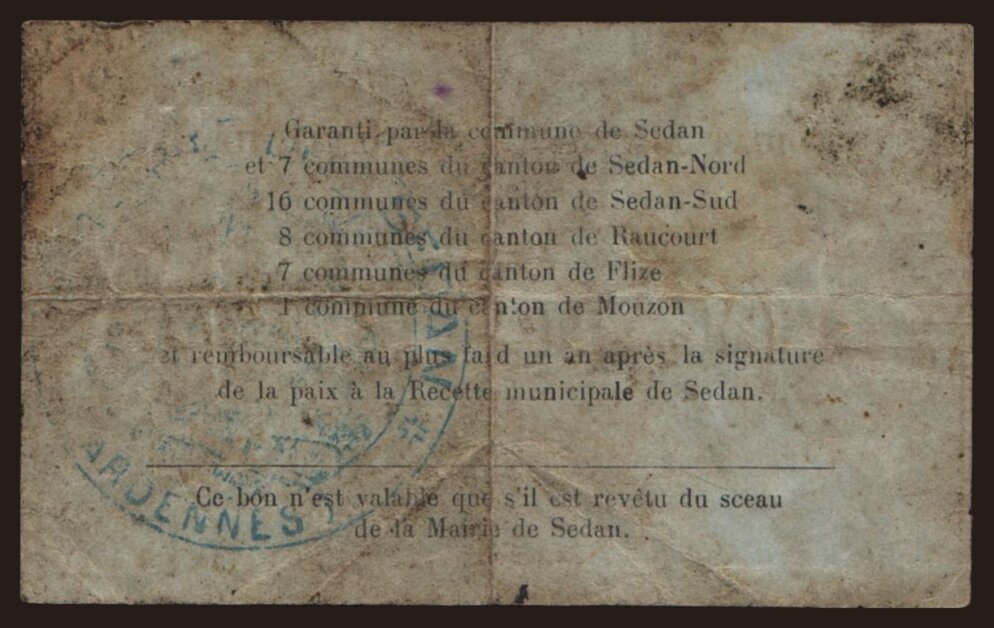 Garanti par la commune de Sedan
et 7 communes du canton de Sedan-Nord
16 communes du canton de Sedan-Sud
8 communes du canton de Raucourt
7 communes du canton de Flize
1 commune du canton de Mouzon
et remboursable au plus tard un an après la signature
de la paix à la Recette municipale de Sedan.
Ce bon n'est valable que s'il est revêtu du sceau
de la Mairie de Sedan.
DAN
ARDENNES